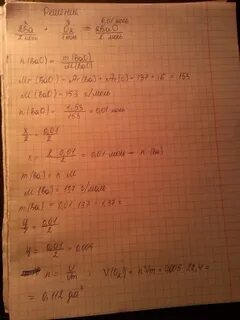 Решение
x y 0,01 моль
2Ba + O₂ = 2BaO
2 моль 1 моль 2 моль
n(BaO) = m(BaO) / M(BaO)
Mr(BaO) = Ar(Ba) + Ar(O) = 137 + 16 = 153
M(BaO) = 153 г/моль
n(BaO) = 1,53 / 153 = 0,01 моль
x / 2 = 0,01 / 2
x = 2 · 0,01 / 2 = 0,01 моль - n(Ba)
m(Ba) = n · M
M(Ba) = 137 г/моль
m(Ba) = 0,01 · 137 = 1,37 г
y / 1 = 0,01 / 2
y = 0,01 / 2 = 0,005
n = V / Vm ; V(O₂) = n · Vm = 0,005 · 22,4 =
= 0,112 дм³